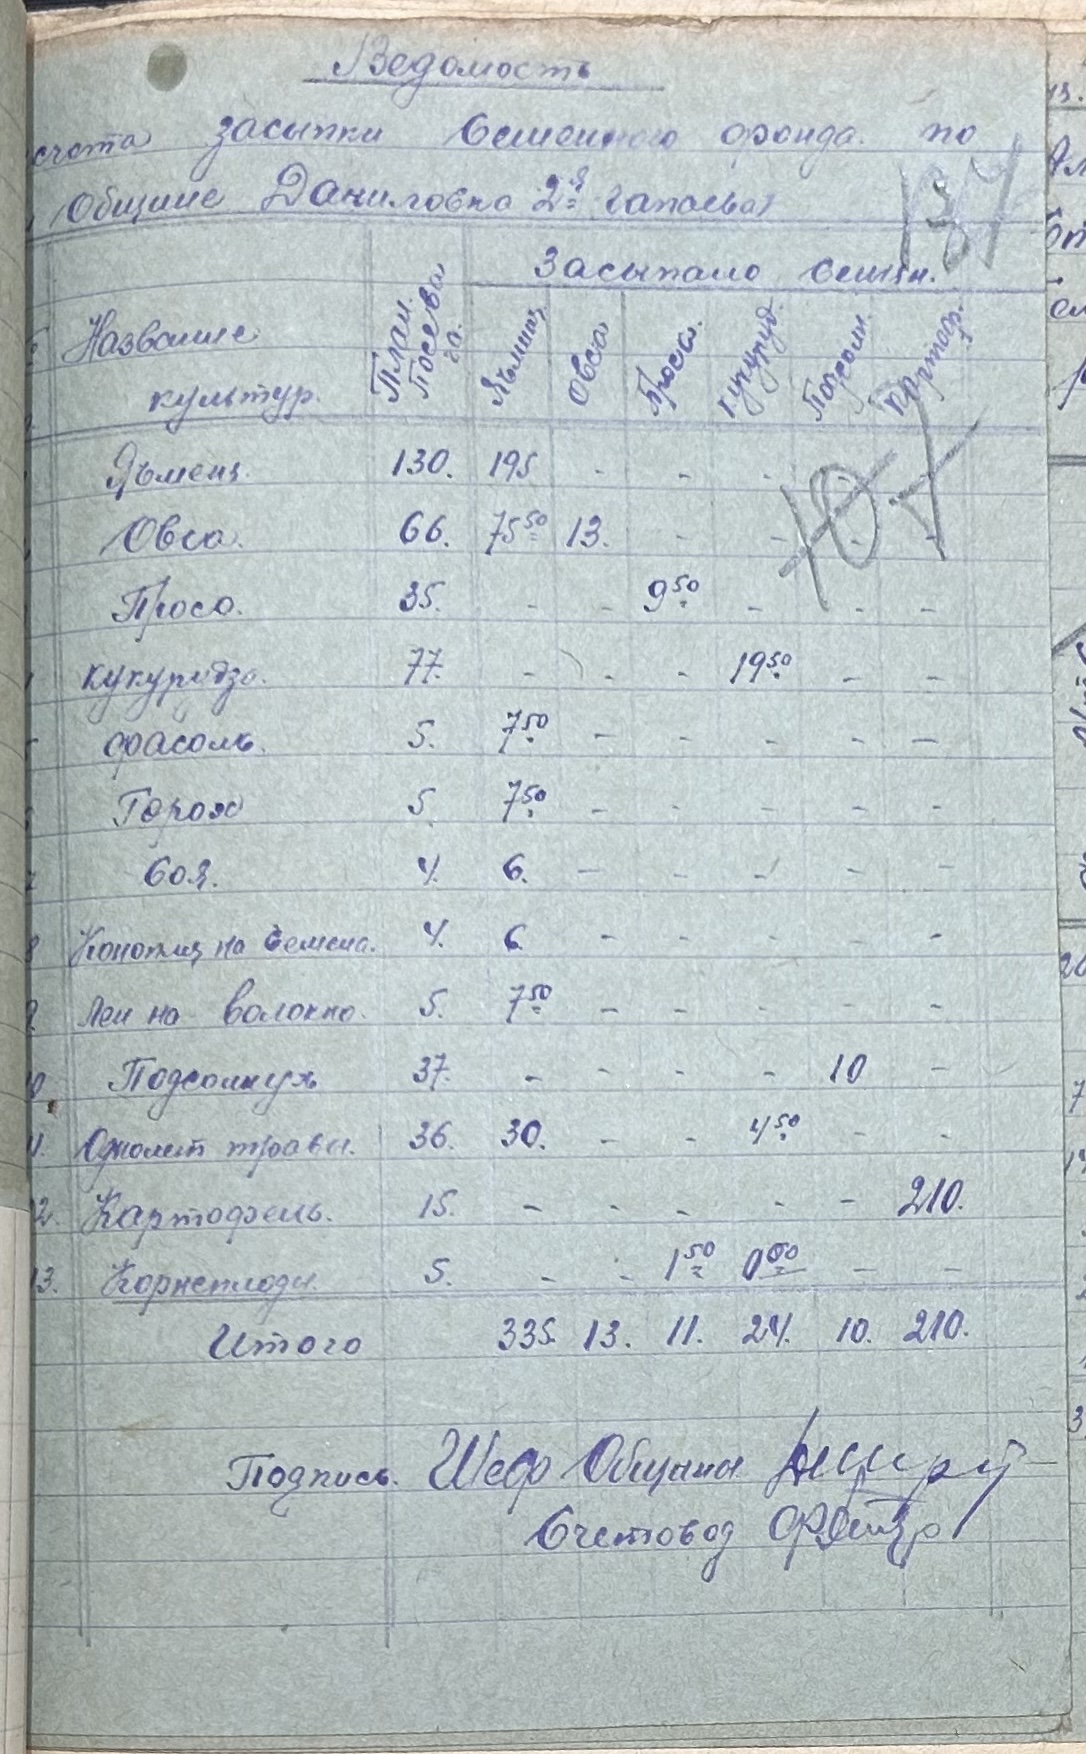 Ведомость
счета засыпки семенного фонда по
Общине Даниловка 2-я
Засыпало семян.
Название культур. План. Посева га. Ячмень Овса Проса. кукуруд. Подсолн. Картоф.
Ячмень. 130. 195 - - - - -
Овса. 66. 75 50 13. - - - -
Просо. 35. - - 9 50 - - -
кукурудза. 77. - - - 19 50 - -
фасоль. 5. 7 50 - - - - -
Горох 5. 7 50 - - - - -
соя. 4. 6. - - - - -
8 Конопля на семена. 4. 6 - - - - -
9. Лен на волокно. 5. 7 50 - - - - -
10. Подсолнух 37. - - - - 10 -
11. Однолет травы. 36. 30. - - 4 50 - -
12. Картофель. 15. - - - - - 210.
13. Корнеплоды. 5. - - 1 50 0 00 - -
Итого 335. 13. 11. 24. 10. 210.
Подпись. Шеф Общины
Счетовод